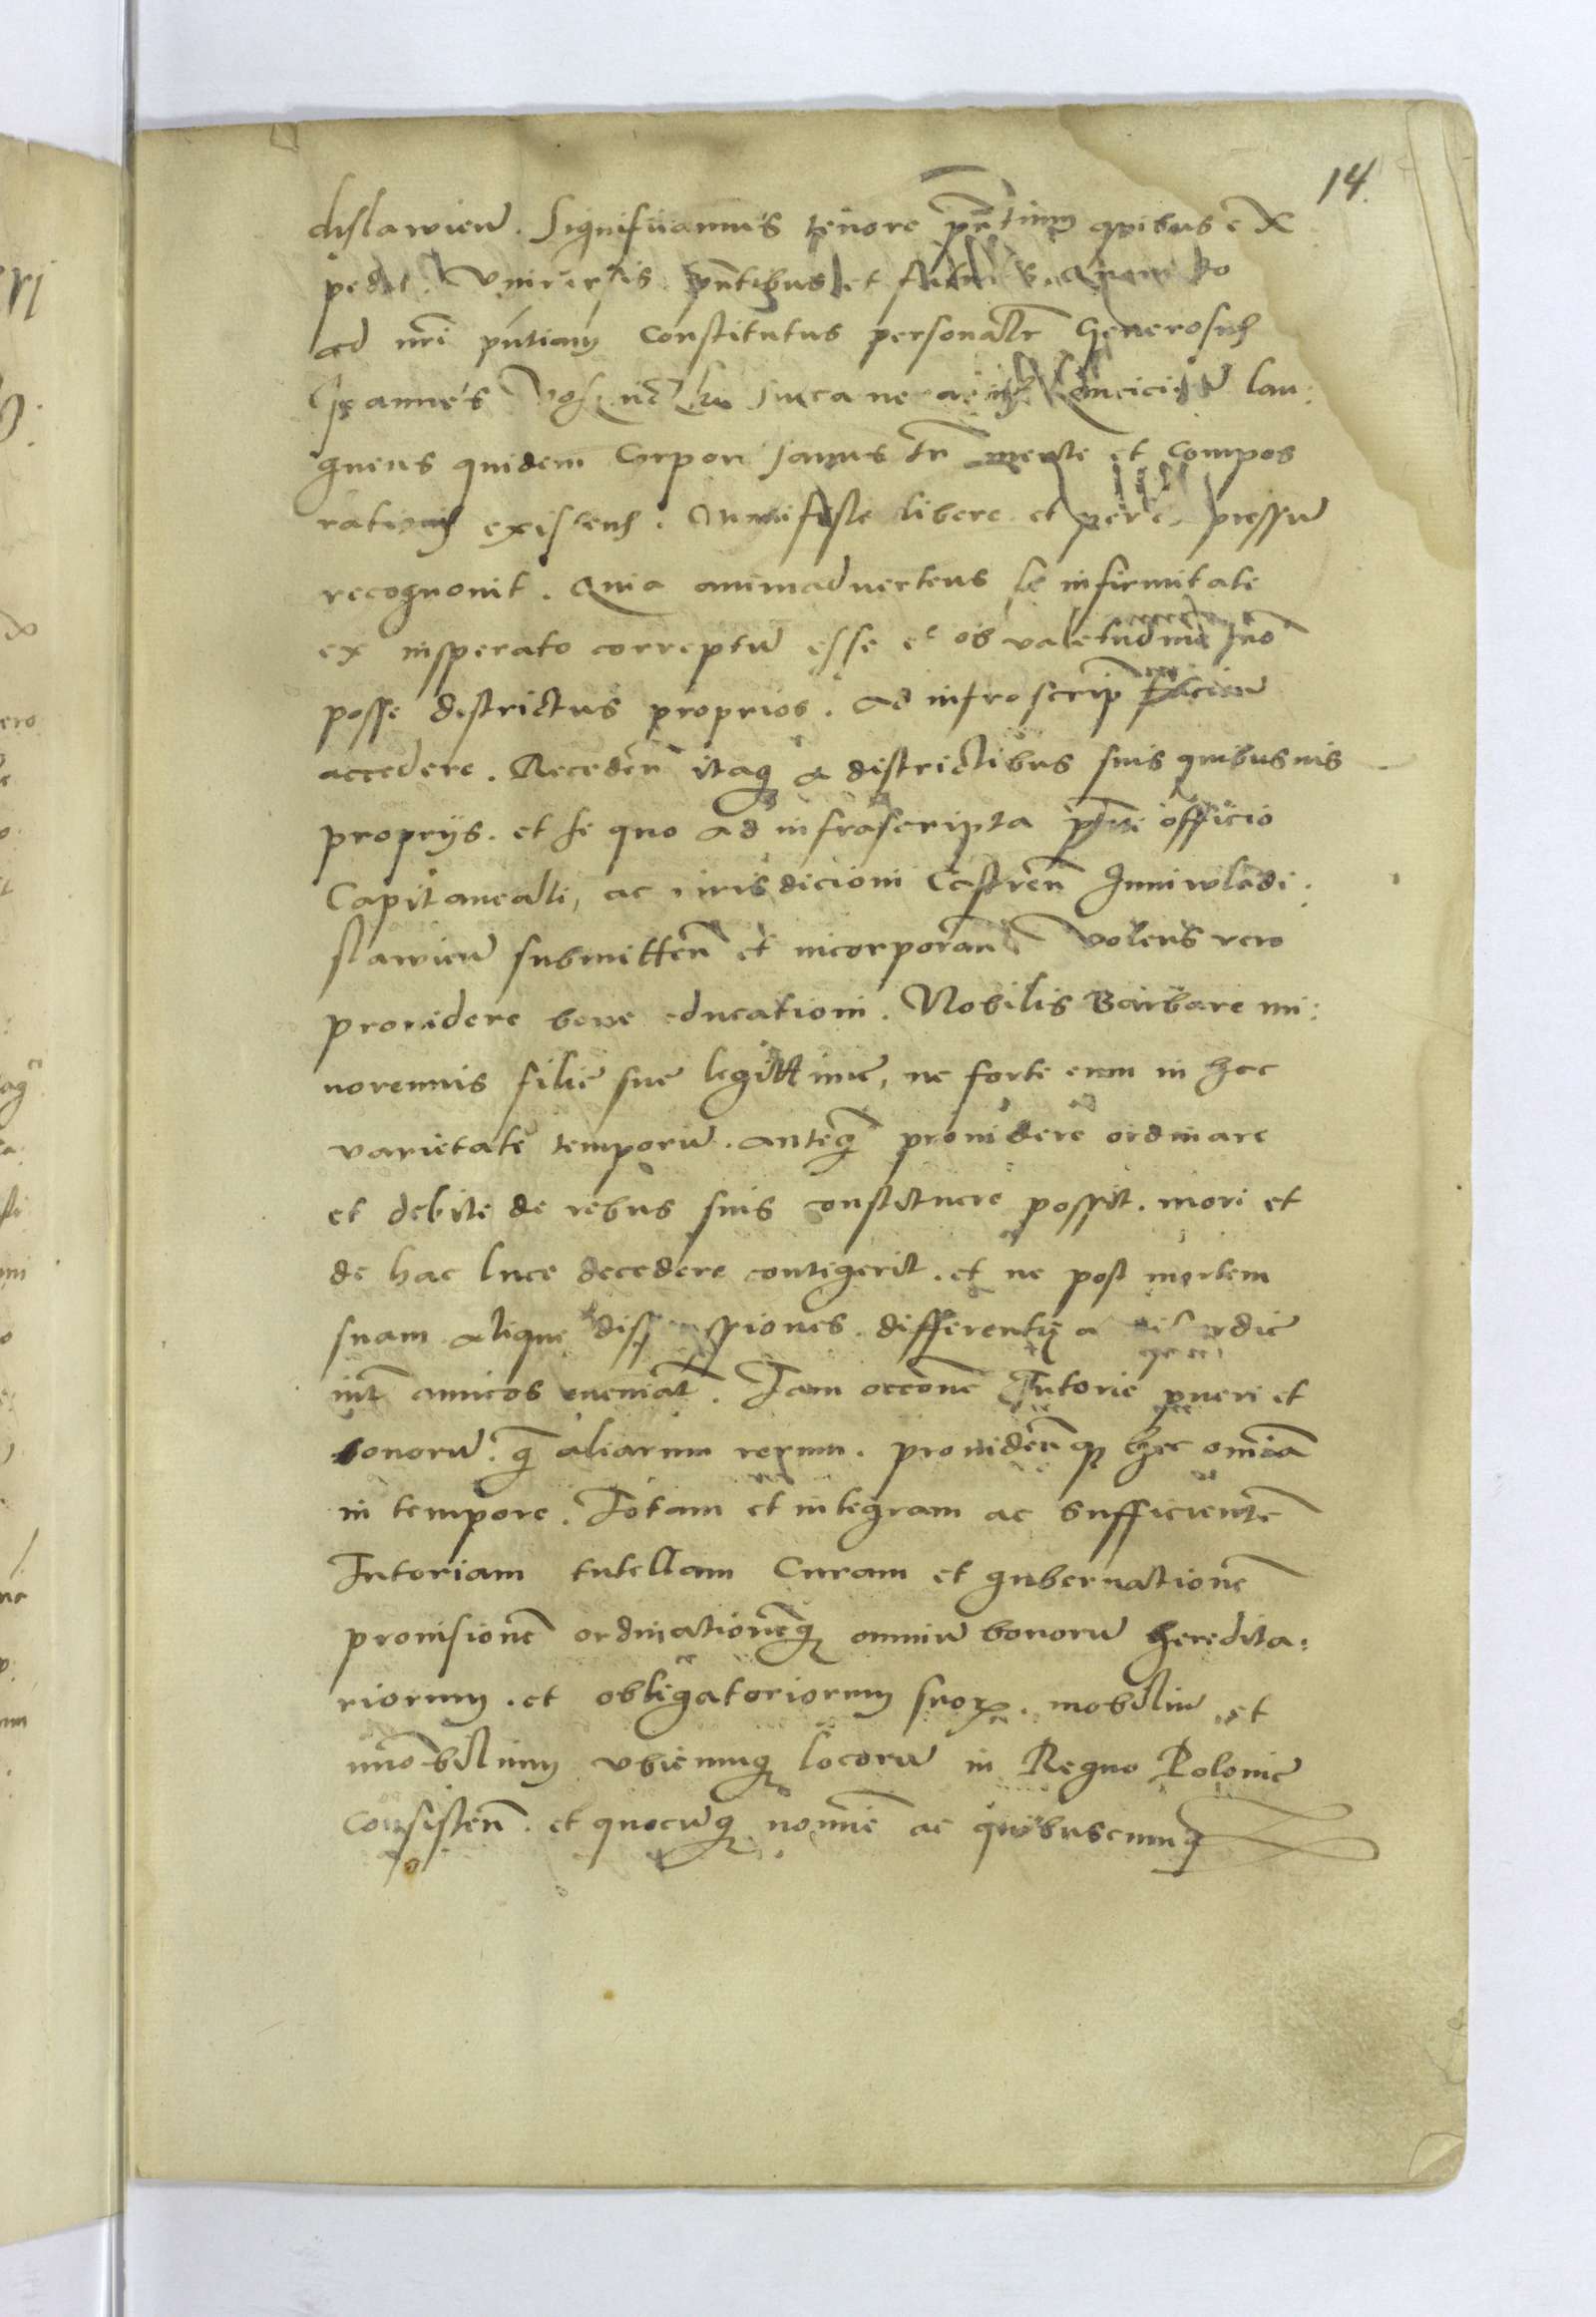 14.
dislawien̄. Significamus tenore pn̄tium quibus ex
pedit. Vniuersis pn̄tibus et futuris. Quomodo
ad nr̄i pn̄tiam constitutus personalr̄ Generosus
Joannes lan:
guens quidem corpore sanus tn̄ mente et compos
rationis existens. Manifeste libere et per expressū
recognouit. Quia animaduertens se infirmitate
ex insperato correptū esse et ob valetudinē nō
posse districtus proprios. Ad infrascrip
accedere. Recedēn itaq̨ a districtibus suis quibusuis
proprijs. et se quo ad infrascripta pn̄ti officio
Capitaneali, ac iurisdicioni Castrēn Juniwladi:
slawien̄ submittēn et incorporan̄ Volens vero
prouidere bone educationi. Nobilis Barbare mi:
norennis filie sue legittime, ne forte eum in hac
varietate temporū. anteq̄ prouidere ordinare
et debite de rebus suis constituere possit. mori et
de hac luce decedere contigerit. et ne post mortem
suam alique dissensiones. differentię a discordie
int̄ amicos eueniāt. Tam occōne Tutorie pueri et
bonorū. q̄ aliarum rerum. prouidēn q̨ hec omīa
in tempore. Totam et integram ac sufficientē
Tutoriam tutellam Curam et gubernationē
prouisionē ordinationēq̨ omniū bonorū heredita:
riorum. et obligatoriorum suoꝝ. mobiliū et
im̄obilium vbicumq̨ locorū in Regno Polonie
consistēn. et quocūq̨ nomīe ac quibuscumq̨